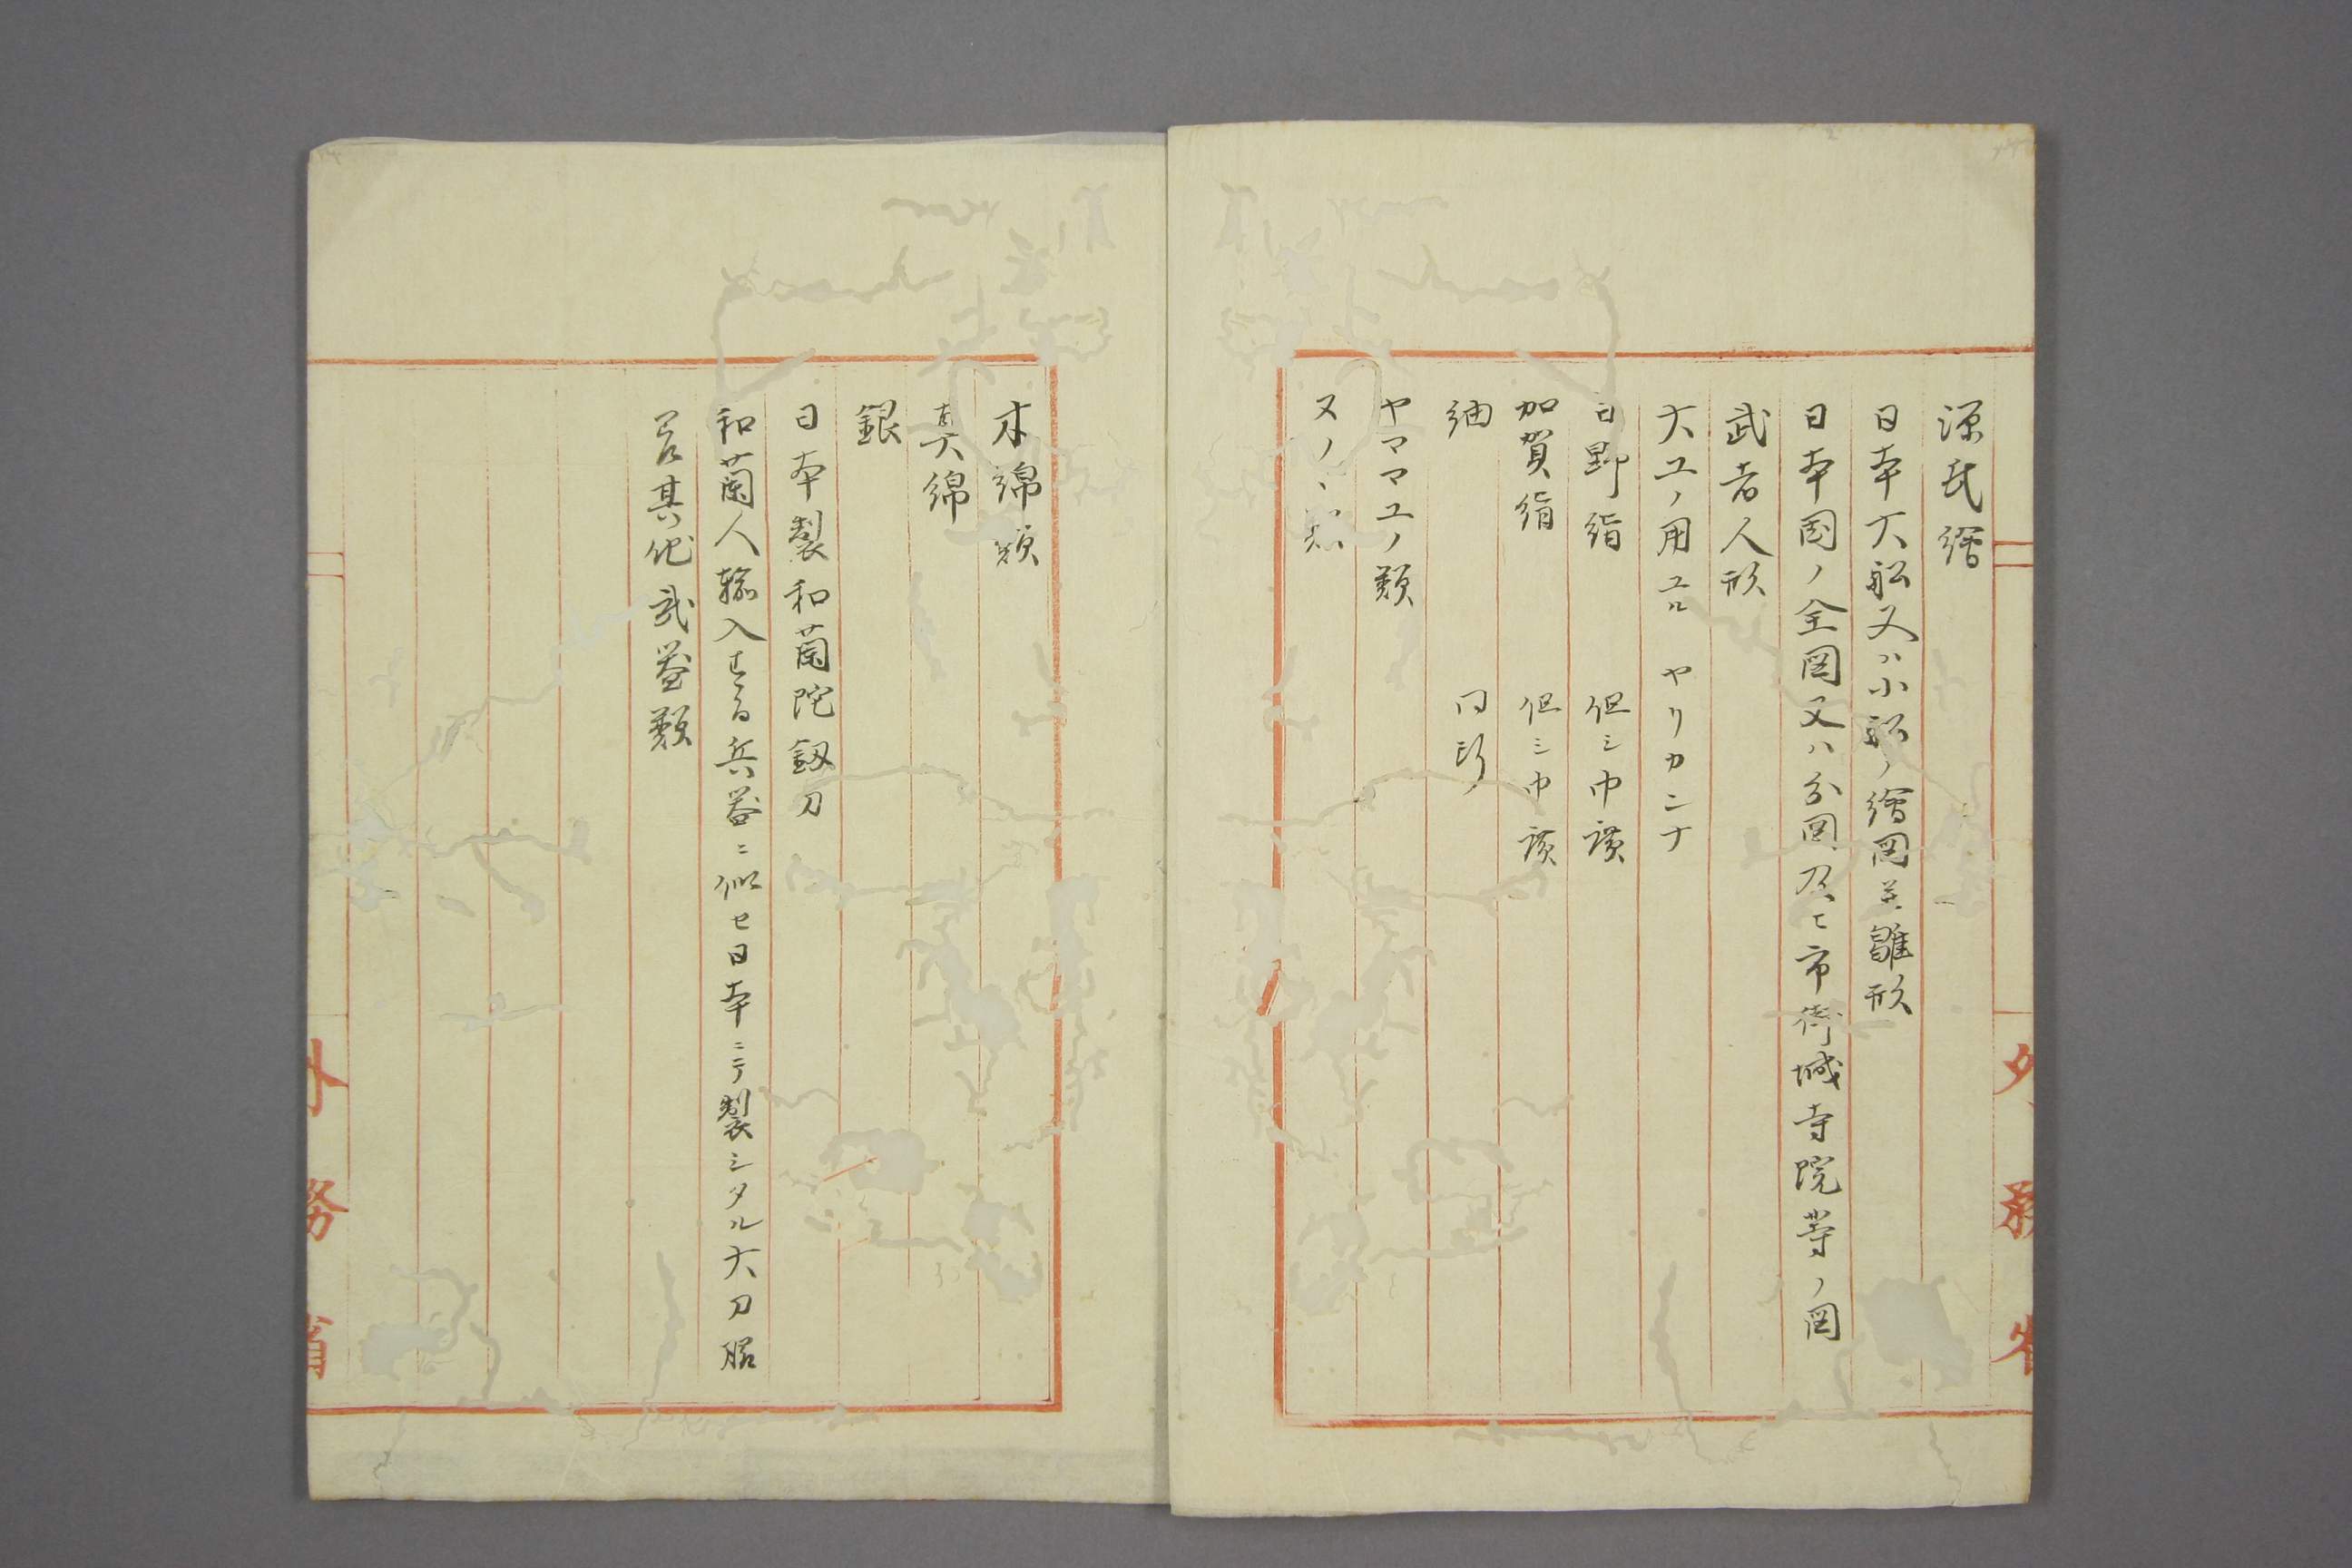 源氏繪
日本大船又ハ小船ノ繪図并雛形
日本国ノ全図又ハ分図及ヒ市街城寺院等ノ図
武者人形
大工ノ用ユル ヤリカンナ
日野絹 但シ巾広
加賀絹 但シ巾広
紬 同断
ヤママユノ類
ヌノヽ類
外務省
木綿類
真綿
銀
日本製和蘭陀釼刀
和蘭人輸入する兵器ニ似セ日本ニテ製シタル大刀脇
差其他武器類
外務省